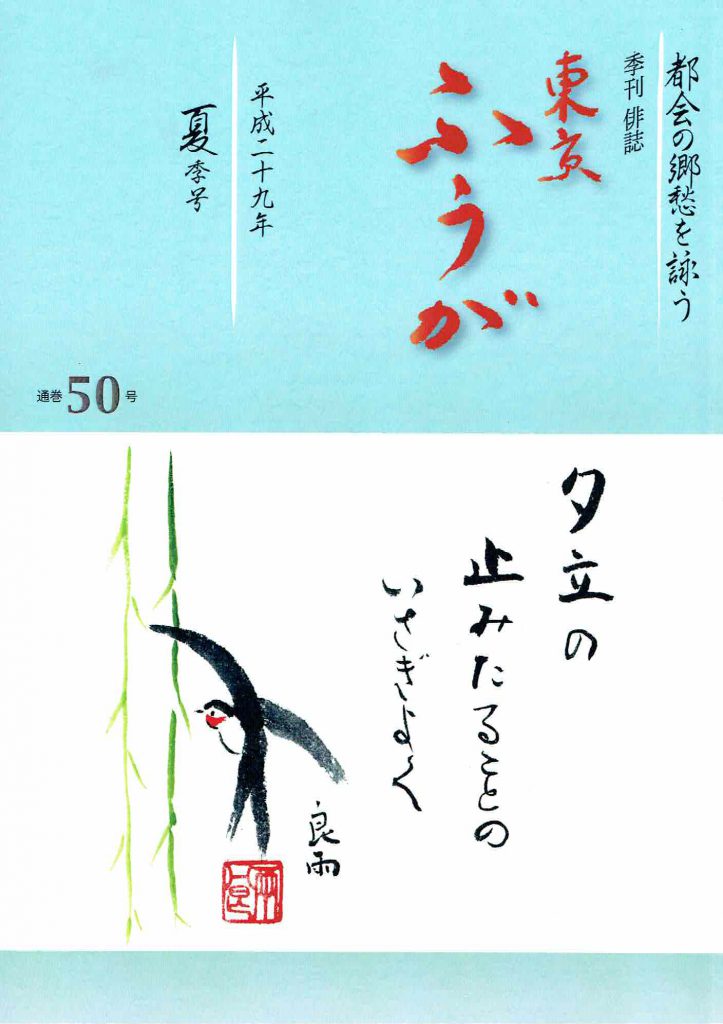 都会の郷愁を詠う
季刊 俳誌
東京
ふうが
平成二十九年
夏季号
通巻50号
夕立の
止みたることの
いさぎよく
良雨